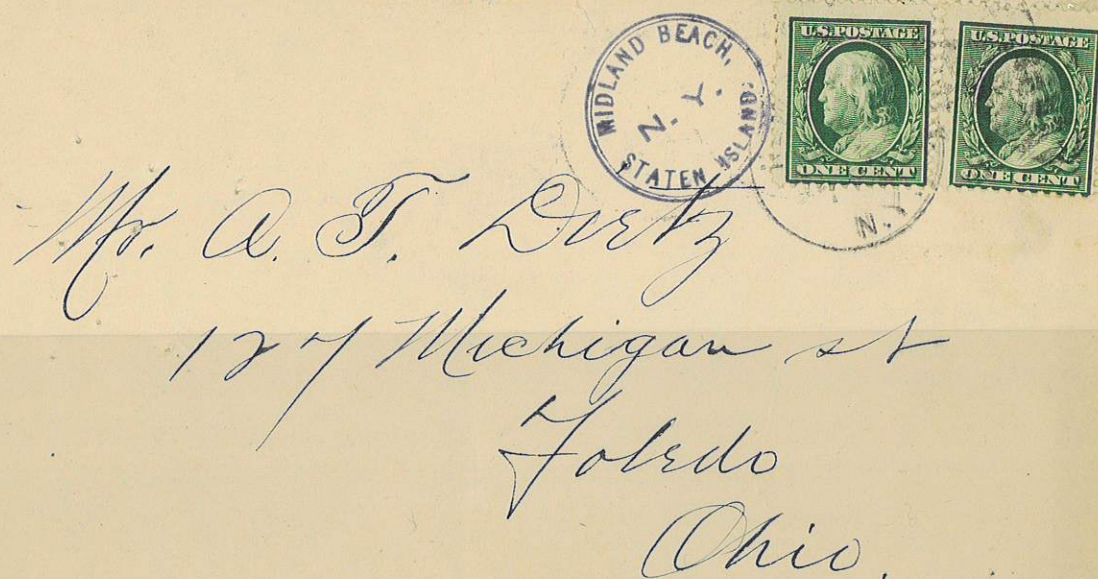 MIDLAND BEACH,
N. Y.
STATEN ISLAND.
U.S. POSTAGE
ONE CENT
U.S. POSTAGE
ONE CENT
N.Y.
Mr. A. T. Dietz
127 Michigan st
Toledo
Ohio.